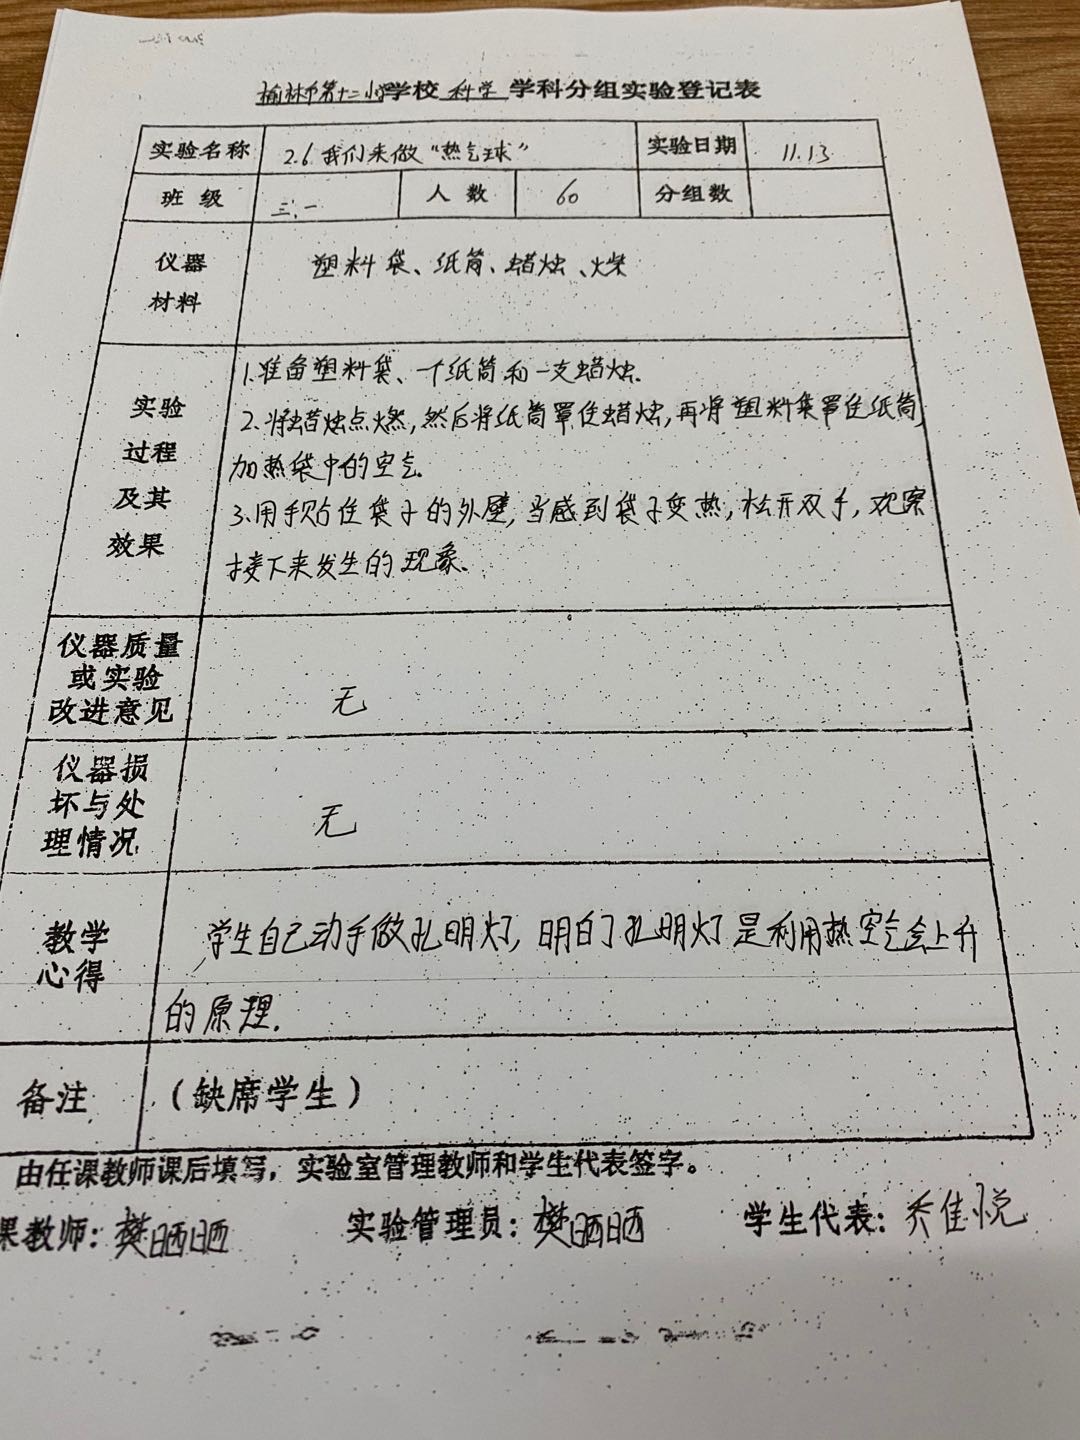 榆林市第十二小学校 科学 学科分组实验登记表
实验名称 2.6 我们来做“热气球” 实验日期 11.13
班级 三、一 人数 60 分组数
仪器材料 塑料袋、纸筒、蜡烛、火柴
实验过程及其效果
1.准备塑料袋、个纸筒和一支蜡烛.
2.将蜡烛点燃,然后将纸筒罩住蜡烛,再将塑料袋罩住纸筒,
加热袋中的空气.
3.用手贴住袋子的外壁,当感到袋子变热,松开双手,观察
接下来发生的现象.
仪器质量或实验改进意见 无
仪器损坏与处理情况 无
教学心得 学生自己动手做孔明灯,明白了孔明灯是利用热空气会上升
的原理.
备注 (缺席学生)
由任课教师课后填写,实验室管理教师和学生代表签字。
课教师:樊晒晒 实验管理员:樊晒晒 学生代表:乔佳悦